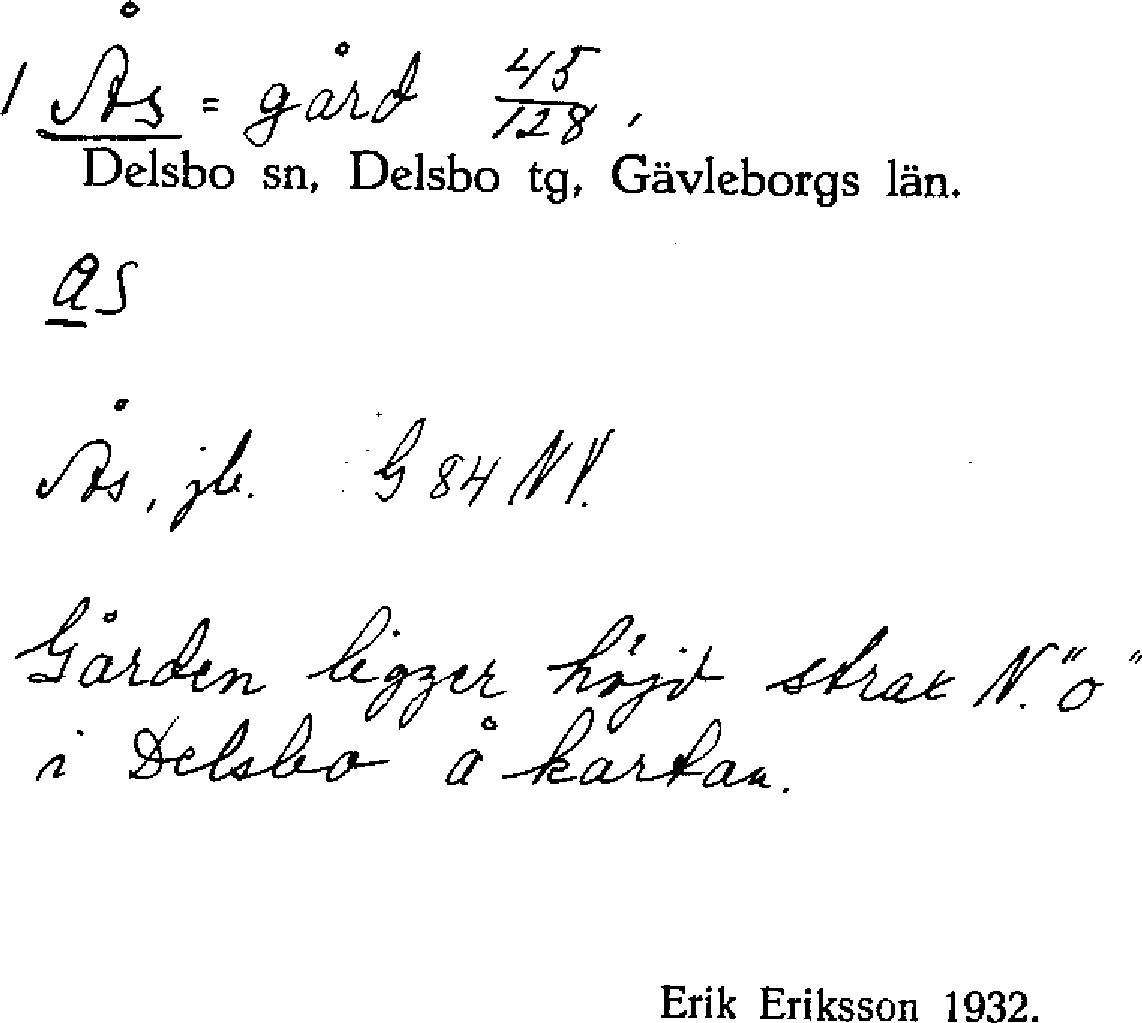 1 Ås = gård 45/128,
Delsbo sn, Delsbo tg, Gävleborgs län.
a̲s
Ås, jb. G 84 NV.
Gården ligger höjd strax N. "ö"
i Delsbo å kartan.
Erik Eriksson 1932.